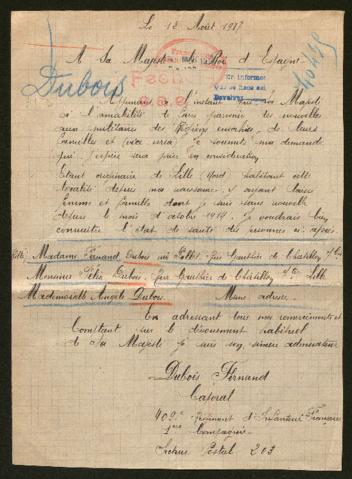 Le 12 Août 1917
A Sa Majesté le Roi d'Espagne
Dubois
Apprenant à l'instant que Sa Majesté
a l'amabilité de faire parvenir des nouvelles
aux militaires des Régions envahies, de leurs
familles et je soumets ma demande
qui j'espère sera prise en considération
Étant originaire de Lille Nord habitant cette
localité depuis ma naissance, y ayant laissé
femme et famille dont je suis sans nouvelle
depuis le mois d'octobre 1914. Je voudrais bien
connaître l'état de santé des personnes ci-après
Madame Fernand Dubois née rue Gauthier de Chatillon
Monsieur Félix Dubois, rue Gauthier de Chatillon Lille
Mademoiselle Angèle Dubois Même adresse.
En adressant tous mes remerciements et
Comptant sur le dévouement habituel
de Sa Majesté je suis son sincère admirateur
Dubois Fernand
Caporal
409e Régiment d'Infanterie Française
1ère Compagnie
Secteur Postal 203